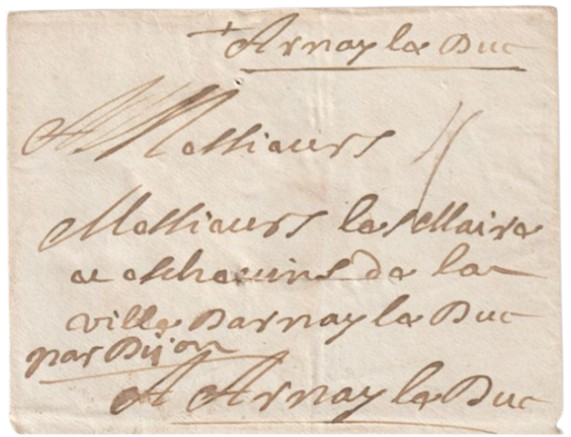 + Arnay le Duc
A Messieurs 4
Messieurs les Maire
et Eschevins de la
ville Darnay le Duc
par Dijon
A Arnay le Duc